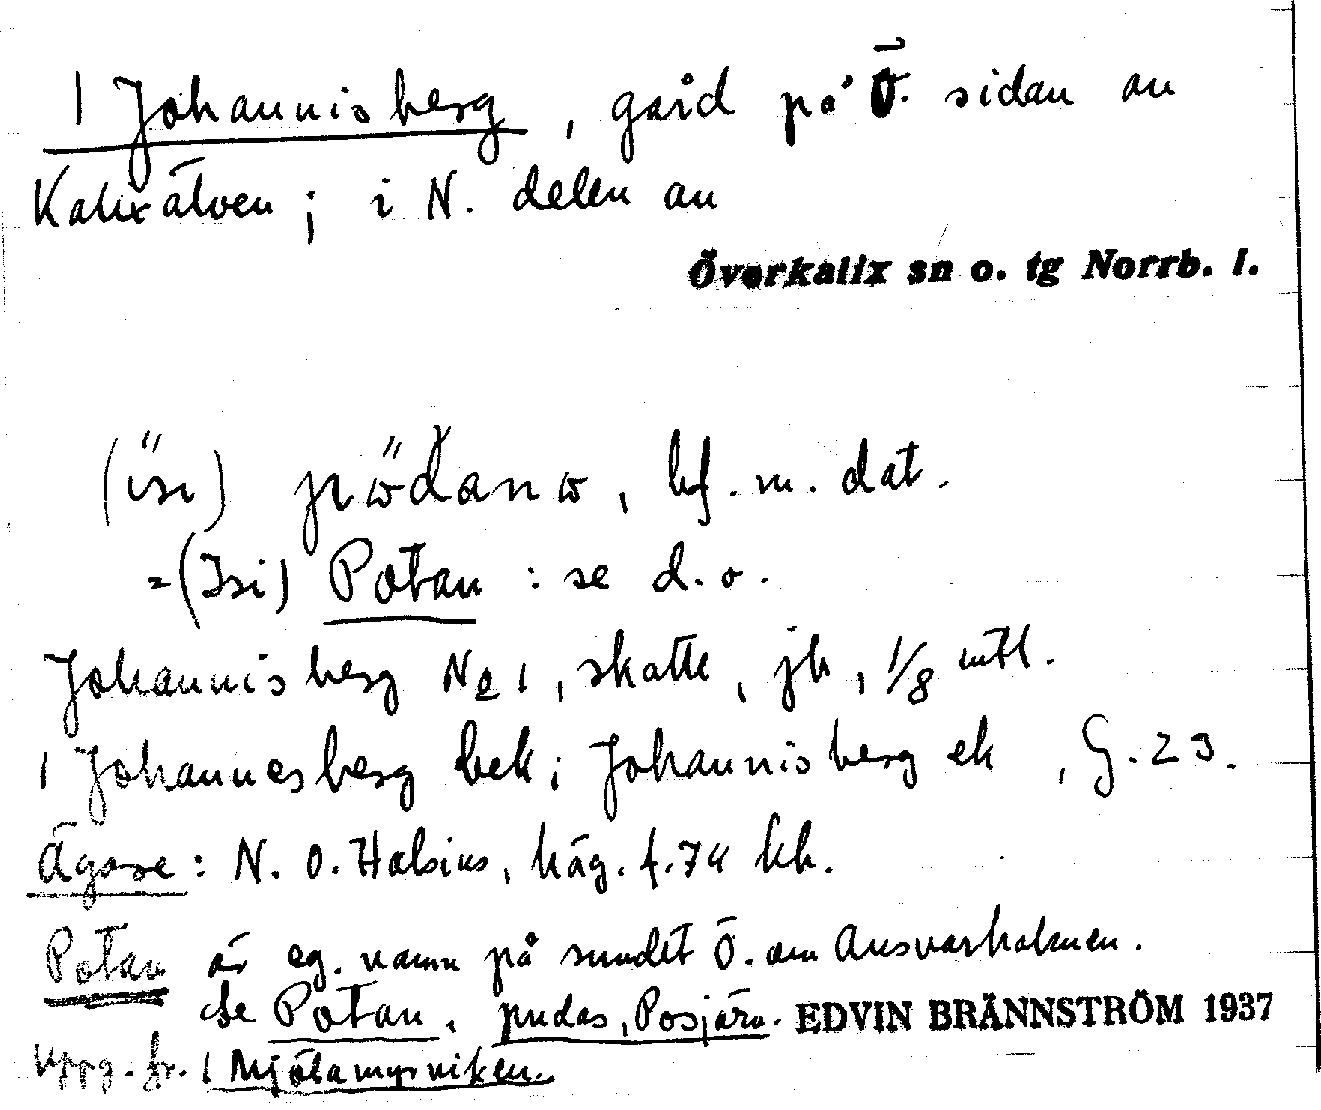 1 Johannisberg, gård på Ö. sidan av
Kalixälven; i N. delen av
Överkalix sn o. tg Norrb. l.
(ısı) , bf. m. dat.
=(Isi) Potan : se d. o.
Johannisberg № 1, skatte, jb, 1/8 mtl.
1 Johannesberg bek; Johannisberg ek, G. 23.
Ägare: N. O. Halsius, häg. f. 74 kb.
Potan är eg. namn på sundet Ö. om Ansvarholmen.
Se Potan, pudas, Posjärv. EDVIN BRÄNNSTRÖM 1937
Uppg. fr. 1 Mjölamyrviken.